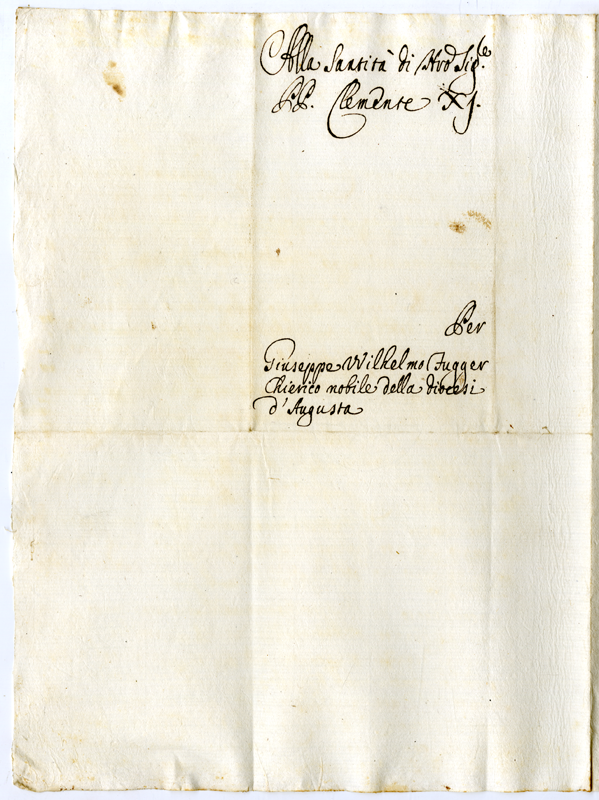 Alla Santità di Nrō Sig.re
PP. Clemente XI.
Per
Giuseppe Wilhelmo Fugger
Chierico nobile della diocesi
d'Augusta